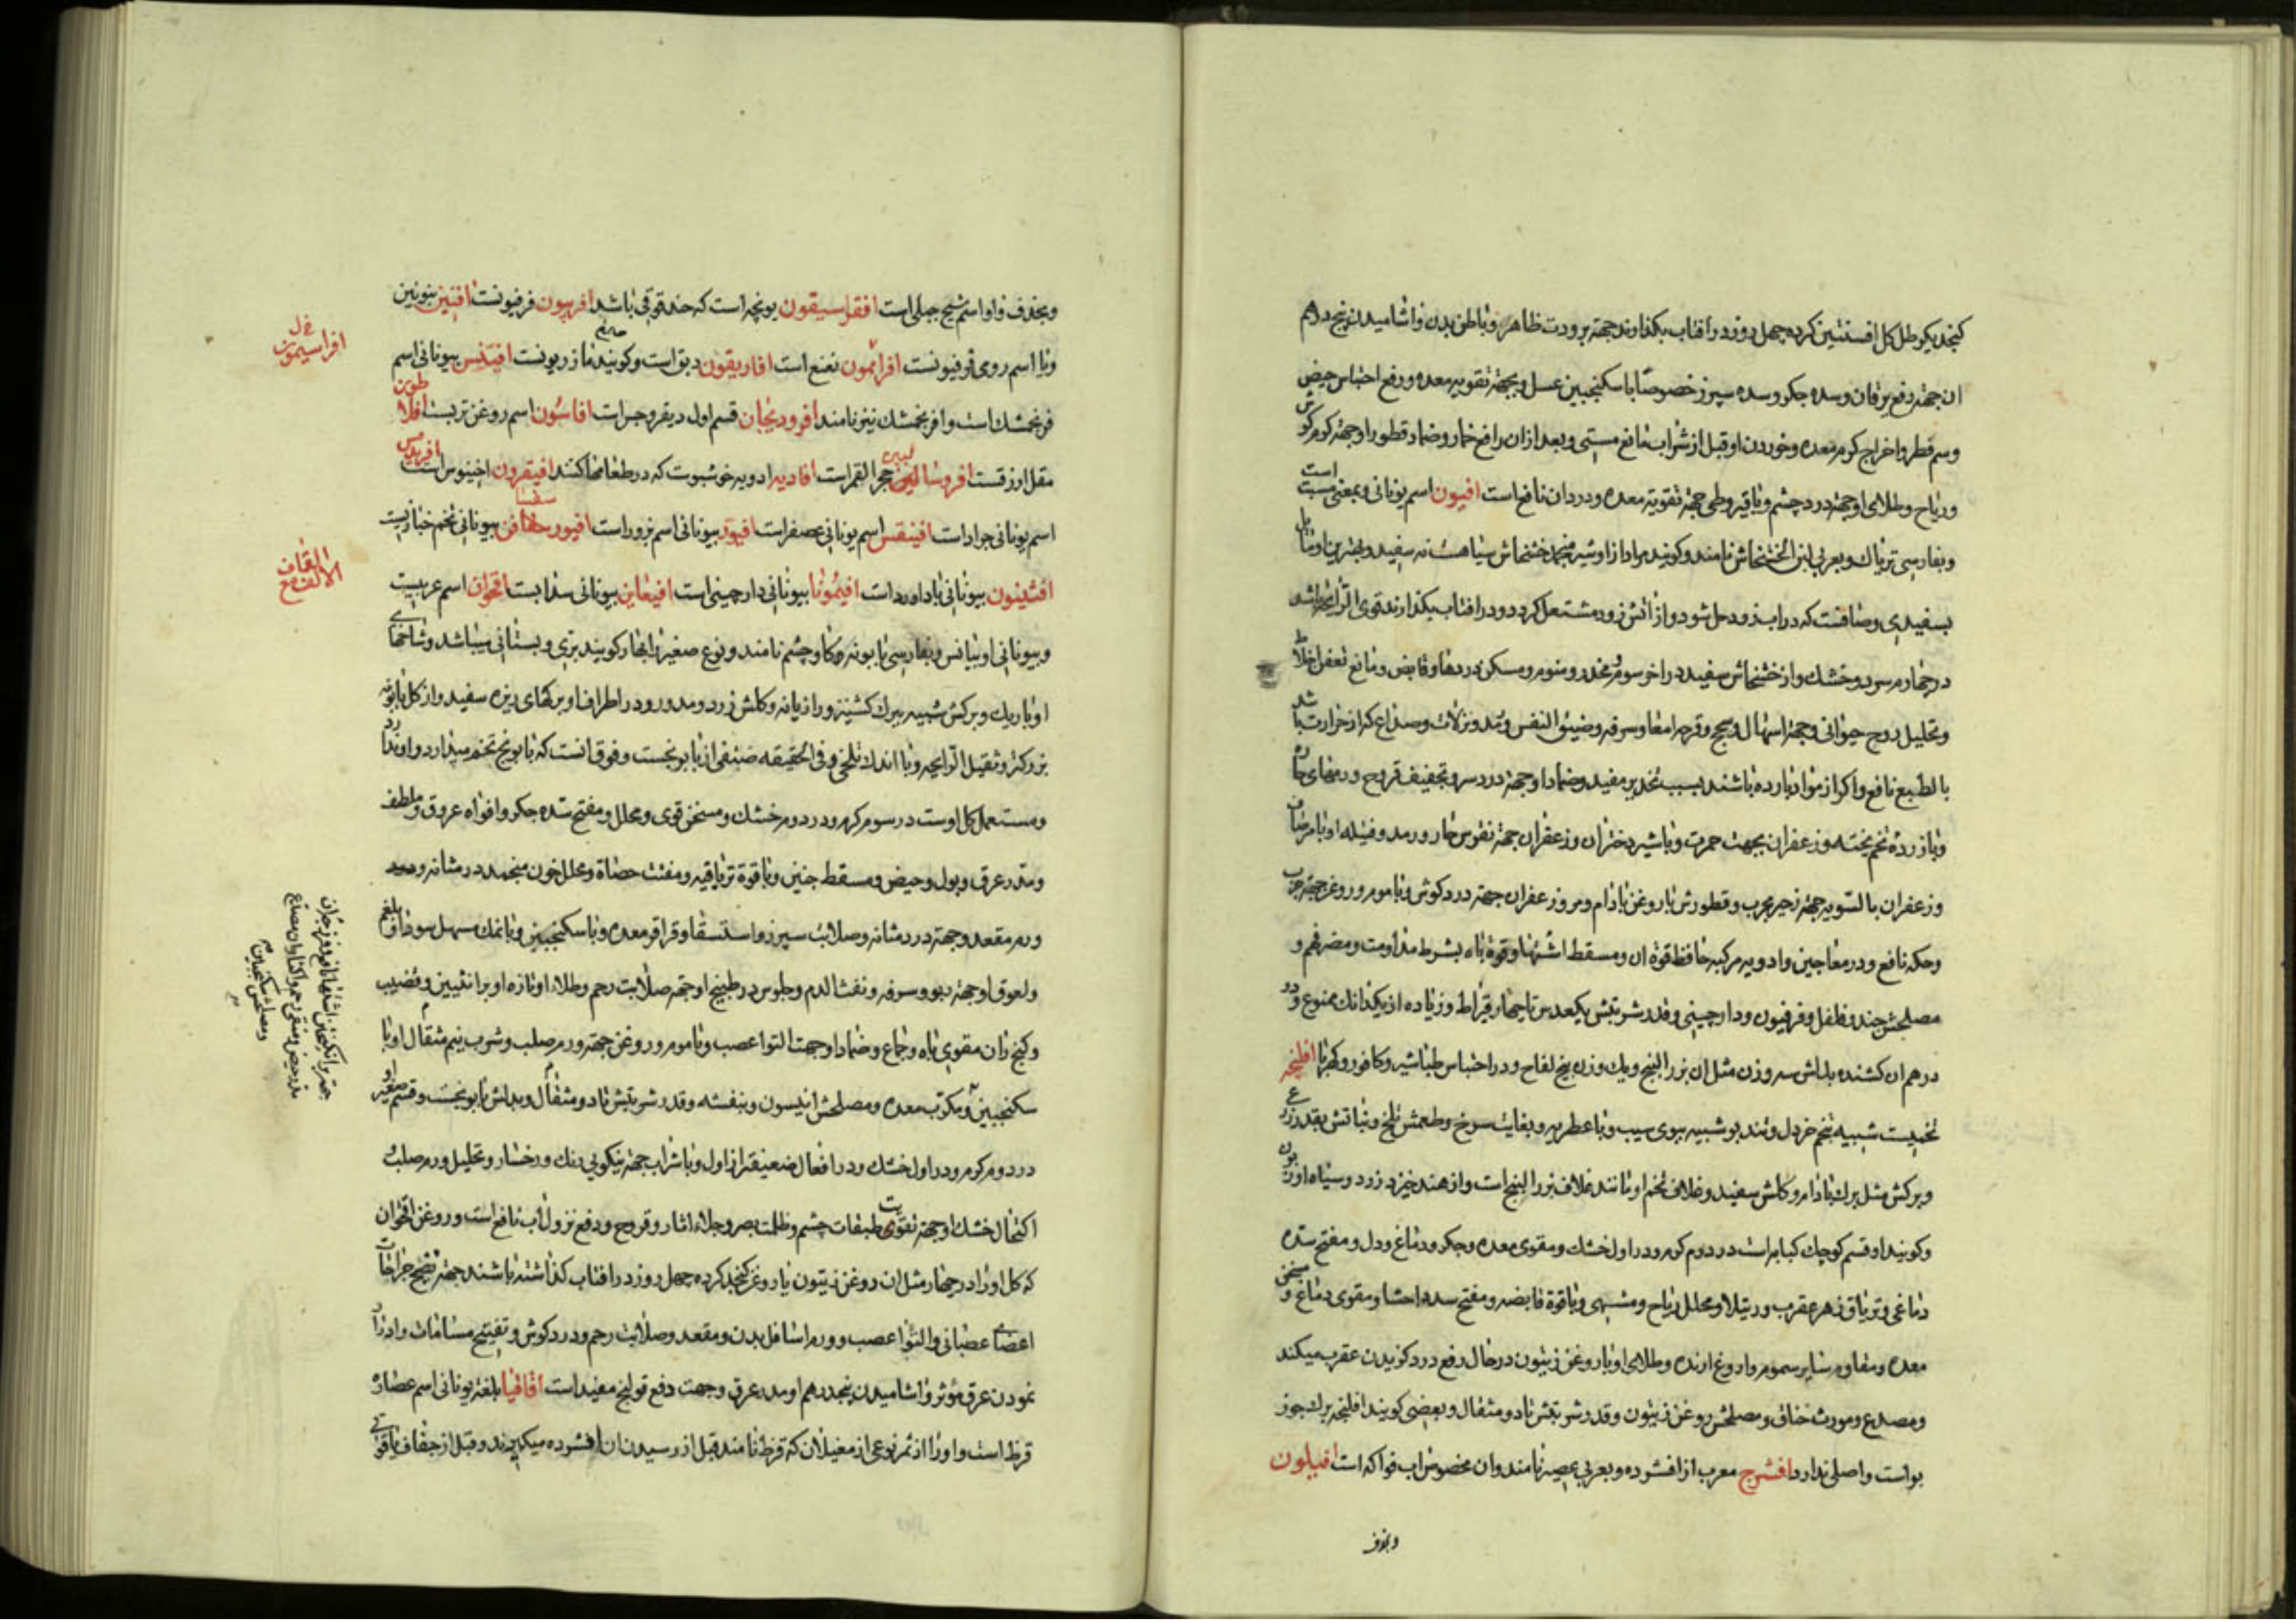 کنجد یکرطل کل افسنتین کرده چهل روز در افتاب بکذارند جهة برودت ظاهر و باطن بدن و اشامیدن پنج درهم
ان جهة رفع یرقان و سده جکر و سده سپرز خصوصا با سکنجبین عسل و بجهة تقویه معده و رفع احتباس حیض
و سم قطر و اخراج کرم معده و خوردن او قبل از شراب مانع مستی و بعد از ان رافع خمار و ضماد قطور او جهة کرم کوش
و ریاح و طلای او جهة درد چشم و با قیروطی جهة تقویة معده و درد ان نافع است افیون اسم یونانی و بمعنی مسبت است
و بفارسی تریاک و بعربی لبن الخشخاش نامند و کویند مراد از او شیر منجمد خشخاش سیاهست نه سفید و بهترین او مایل
بسفیدی و صافست که در اب زود حل شود و از اتش زود مشتعل کردد و در افتاب بکذارند قوی الرایحه باشد
در چهارم سرد و خشک و از خشخاش سفید در اخر سوم و مخدر و منوم و مسکن دردها و قابض و مانع تعفن اخلاط
و تحلیل روح حیوانی و جهة اسهال و سحج و قرحه امعا و سرفه و ضیق النفس و تمدد و نزلات و صداع که از حرارت باشد
بالطبع نافع و اکر از مواد بارده باشند بسبب تخدیر مفید و ضماد او جهة درد سر و تجفیف قروح و رمهای حاره
و با زرده تخم پخته و زعفران بجهت حمرت و با شیر دختران و زعفران جهة نقرس حار و رمد و فتیله او با مرصاف
و زعفران بالسویه جهة زحیر مجرب و قطورش با روغن بادام و مر و زعفران جهة درد کوش و با موم و روغن جهة جرب
و حکه نافع و در معاجین و ادویه مرکبه حافظ قوة ان و مسقط اشتها و قوة باه بشرط مداومت و مضر فهم و
مصلحش جند و فلفل و فرفیون و دارچینی و قدر شربتش یکعدس تا چهار قیراط و زیاده از یکدانک ممنوع و دو
درهم ان کشنده بدلش سه وزن مثل ان بزر البنج و یک وزن بیخ لفاح و در احتباس طباشیر و کافور و کهربا افلنجه
تخمیست شبیه بتخم خردل و تند بو شبیه ببوی سیب و با عطریه و بغایت سرخ و طعمش تلخ و نباتش بقدر زرعی
و برکش مثل برک بادام و کلش سفید و غلاف تخم او مانند غلاف بزر البنج است و از هند خیزد زرد و سیاه او زبون
و کویند او قسم کوچک کبابه است در دوم کرم و در اول خشک و مقوی معده و جکر و دماغ و دل و مفتح سده
دماغی و تریاق زهر عقرب و رتیلا و محلل ریاح و مشهی و با قوة قابضه و مفتح سدد احشا و مقوی دماغ و مسخن
معده و مقاوم سایر سموم و اروغ ارنده و طلای او با روغن زیتون در حال رفع درد کزیدن عقرب میکند
و مصدع و مورث خناق و مصلحش روغن زیتون و قدر شربتش تا دو مثقال و بعضی کویند افلنجه برک جوز
بواست و اصلی ندارد افشرج معرب از افشرده و بعربی عصیر نامند و ان مخصوص اب فواکه است افیلون
و بحذف
و بحذف واو اسم شیح جبلی است افقراسیقون یونجه است که حندقوقی باشد افربیون فرفیونست افنیین بنونین
و با اسم رومی قرفیونست افرانمون نعنع است افاریقون دبق است و کویند مازریونست افیتذس بیونانی اسم
فرنجمشک است و افرنجمشک نیز نامند افرودیجان قسم اول دیفروجس است افاسون اسم روغن تربست افلاطون
مقل ازرقست افروسالینن حجر القمر است افادیه ادویه خوشبوست که در طعامها کنند افیقرون اخینوس است افریدس
اسم یونانی جراد است افینقس اسم یونانی عصفر است افیوز بیونانی اسم بزور است افیورسقسافن بیونانی تخم خبازیست
افثینون بیونانی باداورد است افیمونا بیونانی دارچینی است افیغاین بیونانی سدابست اقحوان اسم عربیست
و بیونانی اونیانس و بفارسی بابونه کاو چشم نامند و نوع صغیر را بهار کویند بری و بستانی میباشد و شاخهای
او باریک و برکش شبیه ببرک کشنیز و رازیانه و کلش زرد و مدور و در اطراف او برکهای ریزه سفید و از کل بابونه
بزرکتر و ثقیل الرایحه و با اندک تلخی و فی الحقیقه صنفی از بابونجست و فرق انست که بابونج تخم میدارد و او ندارد
و مستعمل کل اوست در سوم کرم و در دوم خشک و مسخن قوی و محلل و مفتح سده جکر و افواه عروق و ملطف
و مدر عرق و بول و حیض و مسقط جنین و با قوة تریاقیه و مفتت حصاة و محلل خون منجمد در مثانه و معده
و ورم مقعد و جهة درد مثانه و صلابت سپرز و استسقا و قراقر معده و با سکنجبین و با نمک مسهل سودا و بلغم
و لعوق او جهة ربو و سرفه و نفث الدم و جلوس در طبیخ او جهة صلابت رحم و طلاء او تازه او بر انثیین و قضیب
و کنج ران مقوی باه و جماع و ضماد او جهت التوا عصب و با موم و روغن جهة ورم صلب و شرب نیم مثقال او با
سکنجبین و مکرب معده و مصلحش انیسون و بنفشه و قدر شربتش تا دو مثقال و بدلش بابونجست و قسم صغیر او
در دوم کرم و در اول خشک و در افعال ضعیفتر از اول و با شراب جهة نیکویی رنک و رخسار و تحلیل ورم صلب
اکتحال خشک او جهة تقویت طبقات چشم و ظلمت بصر و جلاء اثار و قروح و رفع نزول اب نافع است و روغن اقحوان
که کل او را در چهار مثل ان روغن زیتون یا روغن کنجد کرده چهل روز در افتاب کذاشته باشند جهة نضج جراحات
اعضای عصبانی و التوا عصب و ورم اسافل بدن و مقعد و صلابت رحم و درد کوش و تفتیح مسامات و ادرار
نمودن عرق مؤثر و اشامیدن پنجدرهم او مدر عرق و جهت دفع قولنج مفید است اقاقیا بلغة یونانی اسم عصاره
قرظ است و او را از ثمر نوعی از مغیلان که قرظ نامند قبل از رسیدن ان افشرده میکیرند و قبل از جفاف یاقوتی
افراسیمون
الالف مع القاف